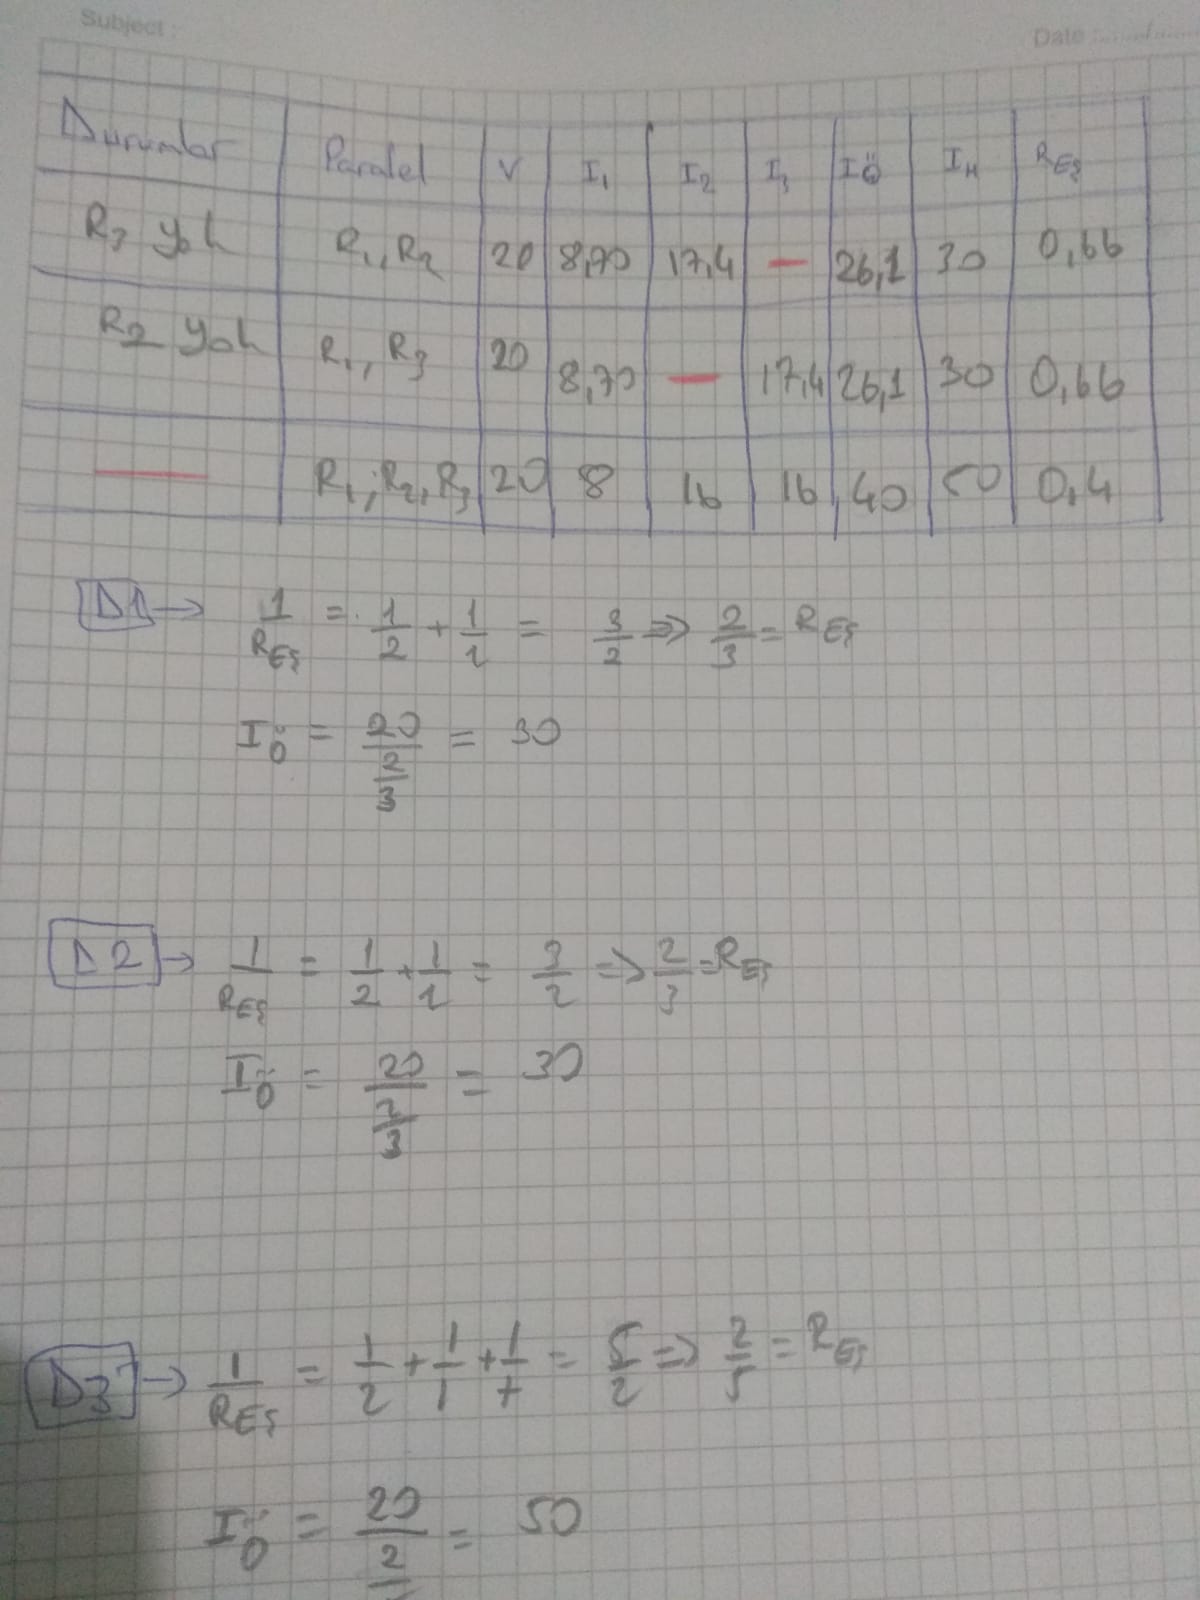 Subject :
Date :
Durumlar Paralel V I₁ I₂ I₃ Iö I_H R_Eş
R₃ yok R₁, R₂ 20 8,70 17,4 — 26,1 30 0,66
R₂ yok R₁, R₃ 20 8,70 — 17,4 26,1 30 0,66
— R₁, R₂, R₃ 20 8 16 16 40 50 0,4
D1 → 1/R_Eş = 1/2 + 1/1 = 3/2 ⇒ 2/3 = R_Eş
Iö = 20/(2/3) = 30
D2 → 1/R_Eş = 1/2 + 1/1 = 3/2 ⇒ 2/3 = R_Eş
Iö = 20/(2/3) = 30
D3 → 1/R_Eş = 1/2 + 1/1 + 1/1 = 5/2 ⇒ 2/5 = R_Eş
Iö = 20/2 = 50